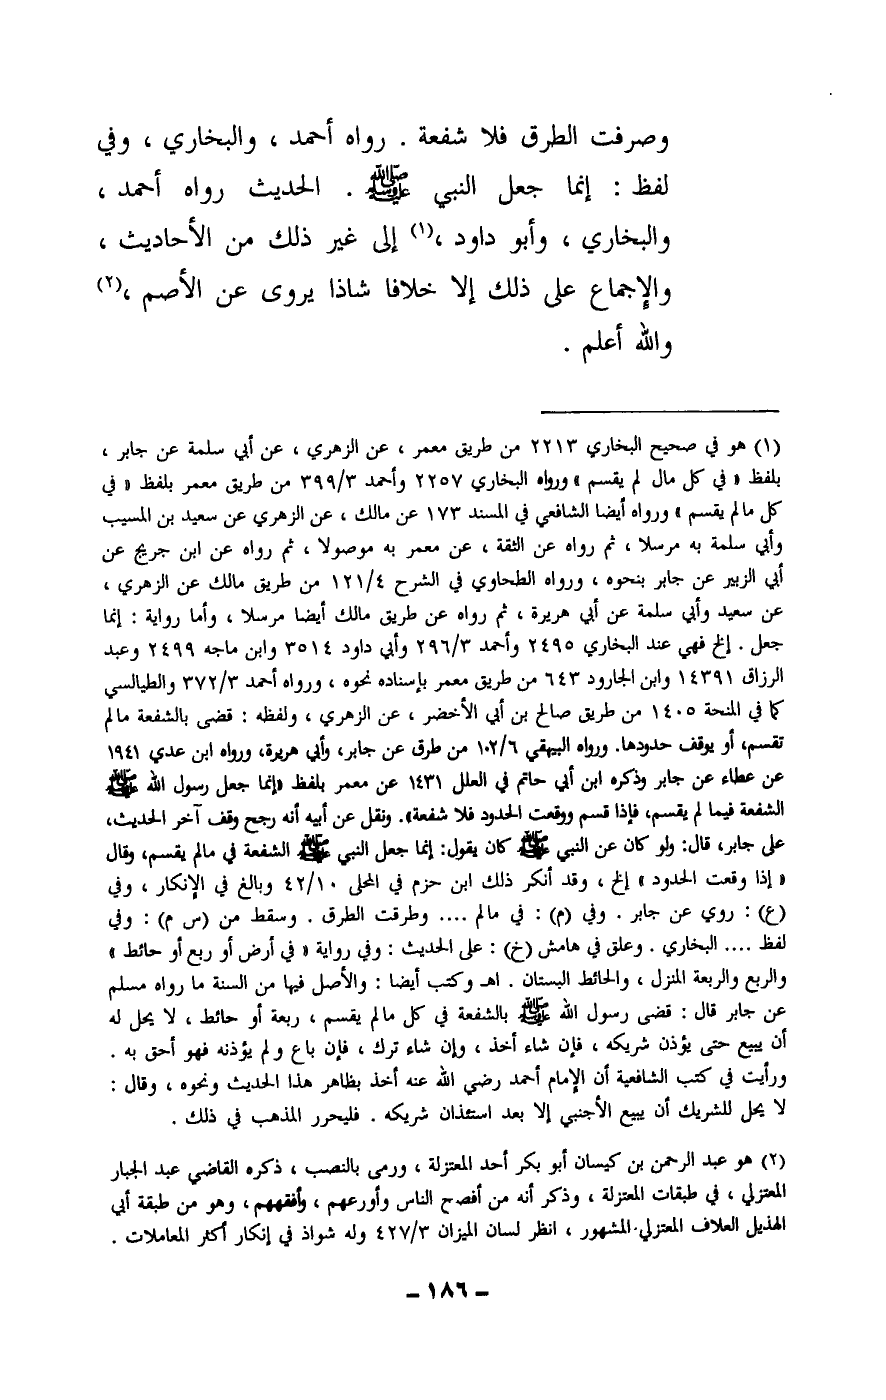 وصرفت الطرق فلا شفعة . رواه أحمد ، والبخاري ، وفي
لفظ : إنما جعل النبي ﷺ . الحديث رواه أحمد ،
والبخاري ، وأبو داود ،(١) إلى غير ذلك من الأحاديث ،
والإجماع على ذلك إلا خلافا شاذا يروى عن الأصم ،(٢)
والله أعلم .
(١) هو في صحيح البخاري ٢٢١٣ من طريق معمر ، عن الزهري ، عن أبي سلمة عن جابر ،
بلفظ « في كل مال لم يقسم » ورواه البخاري ٢٢٥٧ وأحمد ٣٩٩/٣ من طريق معمر بلفظ « في
كل مالم يقسم » ورواه أيضا الشافعي في المسند ١٧٣ عن مالك ، عن الزهري عن سعيد بن المسيب
وأبي سلمة به مرسلا ، ثم رواه عن الثقة ، عن معمر به موصولا ، ثم رواه عن ابن جريج عن
أبي الزبير عن جابر بنحوه ، ورواه الطحاوي في الشرح ١٢١/٤ من طريق مالك عن الزهري ،
عن سعيد وأبي سلمة عن أبي هريرة ، ثم رواه عن طريق مالك أيضا مرسلا ، وأما رواية : إنما
جعل . إلخ فهي عند البخاري ٢٤٩٥ وأحمد ٢٩٦/٣ وأبي داود ٣٥١٤ وابن ماجه ٢٤٩٩ وعبد
الرزاق ١٤٣٩١ وابن الجارود ٦٤٣ من طريق معمر بإسناده نحوه ، ورواه أحمد ٣٧٢/٣ والطيالسي
كما في المنحة ١٤٠٥ من طريق صالح بن أبي الأخضر ، عن الزهري ، ولفظه : قضى بالشفعة مالم
تقسم، أو يوقف حدودها. ورواه البيهقي ١٠٢/٦ من طرق عن جابر، وأبي هريرة، ورواه ابن عدي ١٩٤١
عن عطاء عن جابر وذكره ابن أبي حاتم في العلل ١٤٣١ عن معمر بلفظ «إنما جعل رسول الله ﷺ
الشفعة فيما لم يقسم، فإذا قسم ووقعت الحدود فلا شفعة». ونقل عن أبيه أنه رجح وقف آخر الحديث،
على جابر، قال: ولو كان عن النبي ﷺ كان يقول: إنما جعل النبي ﷺ الشفعة في مالم يقسم، وقال
« إذا وقعت الحدود » إلخ ، وقد أنكر ذلك ابن حزم في المحلى ٤٢/١٠ وبالغ في الإنكار ، وفي
(ع) : روي عن جابر . وفي (م) : في مالم .... وطرقت الطرق . وسقط من (س م) : وفي
لفظ .... البخاري . وعلق في هامش (خ) : على الحديث : وفي رواية « في أرض أو ربع أو حائط »
والربع والربعة المنزل ، والحائط البستان . اهـ وكتب أيضا : والأصل فيها من السنة ما رواه مسلم
عن جابر قال : قضى رسول الله ﷺ بالشفعة في كل مالم يقسم ، ربعة أو حائط ، لا يحل له
أن يبيع حتى يؤذن شريكه ، فإن شاء أخذ ، وإن شاء ترك ، فإن باع ولم يؤذنه فهو أحق به .
ورأيت في كتب الشافعية أن الإمام أحمد رضي الله عنه أخذ بظاهر هذا الحديث ونحوه ، وقال :
لا يحل للشريك أن يبيع الأجنبي إلا بعد استئذان شريكه . فليحرر المذهب في ذلك .
(٢) هو عبد الرحمن بن كيسان أبو بكر أحد المعتزلة ، ورمى بالنصب ، ذكره القاضي عبد الجبار
المعتزلي ، في طبقات المعتزلة ، وذكر أنه من أفصح الناس وأورعهم ، وأفقههم ، وهو من طبقة أبي
الهذيل العلاف المعتزلي المشهور ، انظر لسان الميزان ٤٢٧/٣ وله شواذ في إنكار أكثر المعاملات .
- ١٨٦ -